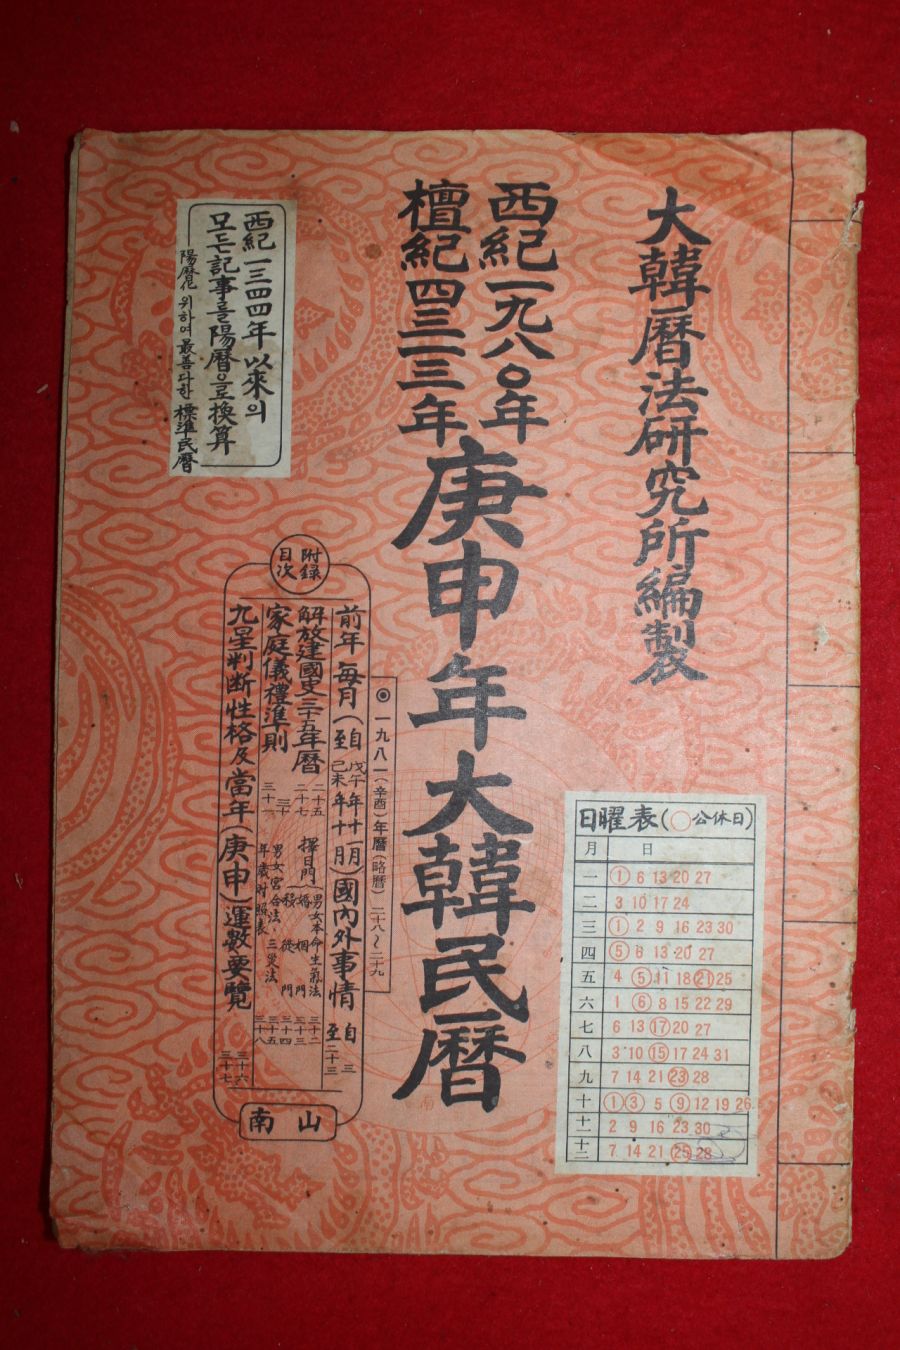 大韓曆法研究所編製
西紀一九八〇年
檀紀四三一三年
庚申年大韓民曆
西紀一三四四年以來의
모든記事를陽曆으로換算
陽曆化 위하여 最善다한 標準民曆
附録
目次
◎一九八一(辛酉)年曆(略曆) 二十八~二十九
前年 每月(自戊午年十一月 至己未年十月)國內外事情 自三 至二十三
解放建國史三十五年曆 二十五 二十七
擇日門 男女本命生氣法 三十二
婚姻門 三十三
移徙門 三十四
家庭儀禮準則 三十 三十一
男女宮合法·三災法 三十五
年歲對照表 三十八
九星判断性格及當年(庚申)運數要覽 三十六 三十七
南山
日曜表(○公休日)
月 日
一 1 6 13 20 27
二 3 10 17 24
三 1 2 9 16 23 30
四 5 6 13 20 27
五 4 5 11 18 21 25
六 1 6 8 15 22 29
七 6 13 17 20 27
八 3 10 15 17 24 31
九 7 14 21 23 28
十 1 3 5 9 12 19 26
十一 2 9 16 23 30
十二 7 14 21 25 28